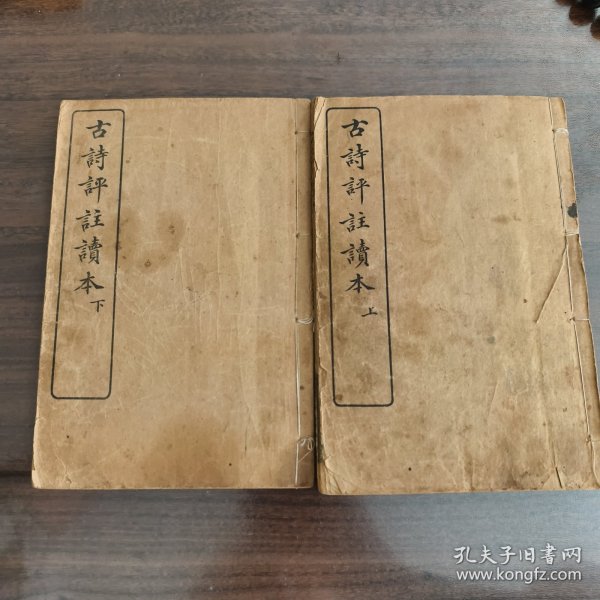 古詩評註讀本上
古詩評註讀本下
孔夫子旧書网
www.kongfz.com